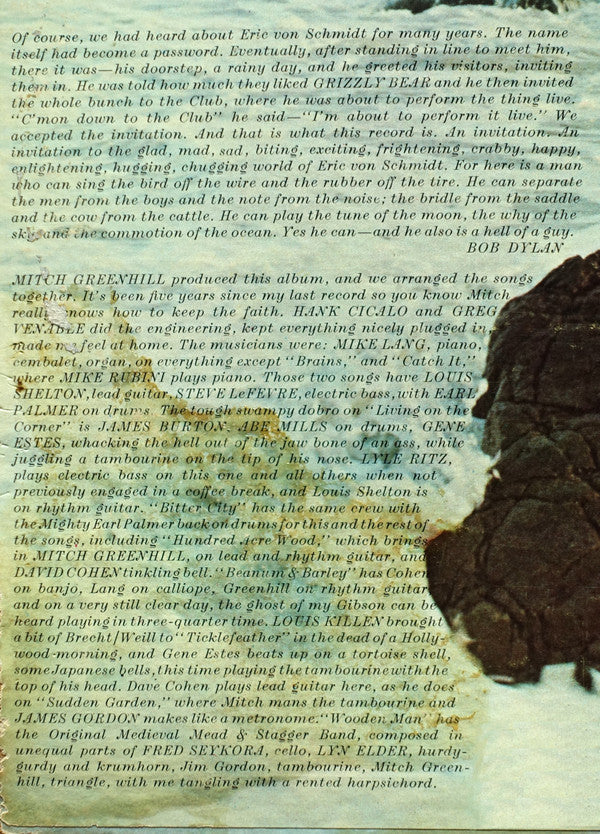 Of course, we had heard about Eric von Schmidt for many years. The name
itself had become a password. Eventually, after standing in line to meet him,
there it was—his doorstep, a rainy day, and he greeted his visitors, inviting
them in. He was told how much they liked GRIZZLY BEAR and he then invited
the whole bunch to the Club, where he was about to perform the thing live.
"C'mon down to the Club" he said—"I'm about to perform it live." We
accepted the invitation. And that is what this record is. An invitation. An
invitation to the glad, mad, sad, biting, exciting, frightening, crabby, happy,
enlightening, hugging, chugging world of Eric von Schmidt. For here is a man
who can sing the bird off the wire and the rubber off the tire. He can separate
the men from the boys and the note from the noise; the bridle from the saddle
and the cow from the cattle. He can play the tune of the moon, the why of the
sky and the commotion of the ocean. Yes he can—and he also is a hell of a guy.
BOB DYLAN
MITCH GREENHILL produced this album, and we arranged the songs
together. It's been five years since my last record so you know Mitch
really knows how to keep the faith. HANK CICALO and GREG
VENABLE did the engineering, kept everything nicely plugged in,
made me feel at home. The musicians were: MIKE LANG, piano,
cembalet, organ, on everything except "Brains," and "Catch It,"
where MIKE RUBINI plays piano. Those two songs have LOUIS
SHELTON, lead guitar, STEVE LeFEVRE, electric bass, with EARL
PALMER on drums. The tough swampy dobro on "Living on the
Corner" is JAMES BURTON. ABE MILLS on drums, GENE
ESTES, whacking the hell out of the jaw bone of an ass, while
juggling a tambourine on the tip of his nose. LYLE RITZ,
plays electric bass on this one and all others when not
previously engaged in a coffee break, and Louis Shelton is
on rhythm guitar. "Bitter City" has the same crew with
the Mighty Earl Palmer back on drums for this and the rest of
the songs, including "Hundred Acre Wood," which brings
in MITCH GREENHILL, on lead and rhythm guitar, and
DAVID COHEN tinkling bell. "Beanum & Barley" has Cohen
on banjo, Lang on calliope, Greenhill on rhythm guitar
and on a very still clear day, the ghost of my Gibson can be
heard playing in three-quarter time. LOUIS KILLEN brought
a bit of Brecht/Weill to "Ticklefeather" in the dead of a Holly-
wood morning, and Gene Estes beats up on a tortoise shell,
some Japanese bells, this time playing the tambourine with the
top of his head. Dave Cohen plays lead guitar here, as he does
on "Sudden Garden," where Mitch mans the tambourine and
JAMES GORDON makes like a metronome. "Wooden Man" has
the Original Medieval Mead & Stagger Band, composed in
unequal parts of FRED SEYKORA, cello, LYN ELDER, hurdy-
gurdy and krumhorn, Jim Gordon, tambourine, Mitch Green-
hill, triangle, with me tangling with a rented harpsichord.